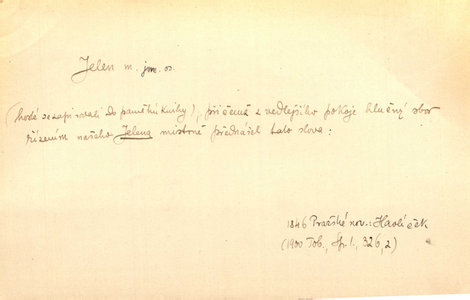 Jelen m. jm. os.
(hosté se zapisovali do pamětní knihy), při čemž z vedlejšího pokoje hlučný sbor
řízením našeho Jelena mistrně přednášel tato slova:
1846 Pražské nov.: Havlíček
(1900 Tob., Spr. 1., 326, 2)